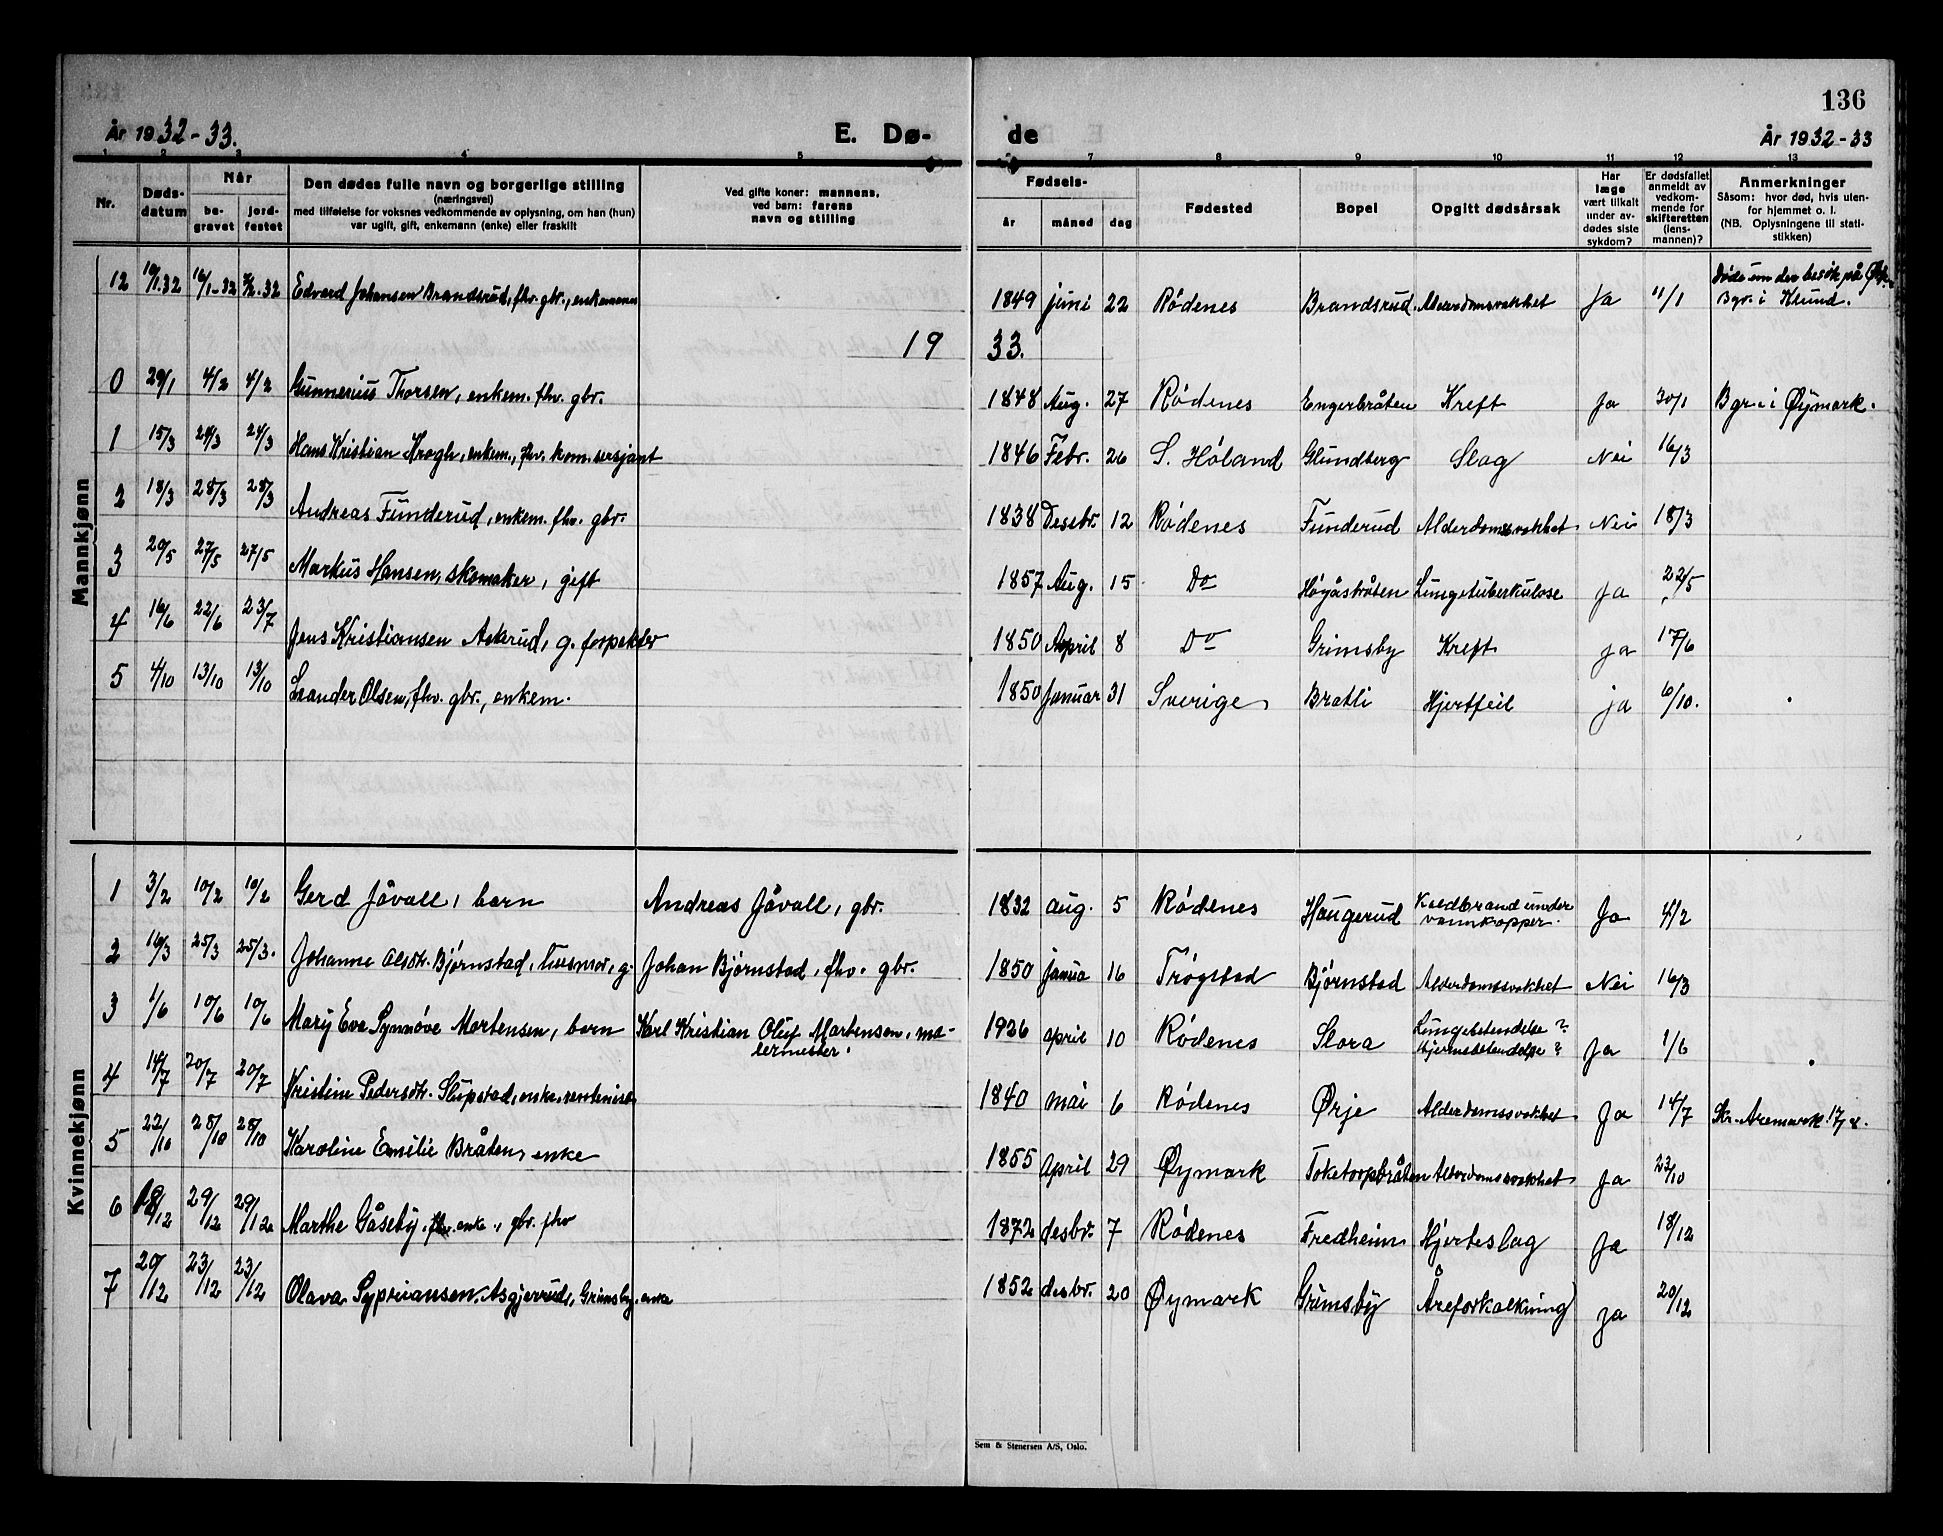 136
År 1932-33.
E. Dø-
de
År 1932-33
1 2 3 4 5 7 8 9 10 11 12 13
Nr.
Døds-
datum
Når
be-
gravet
jord-
festet
Den dødes fulle navn og borgerlige stilling
(næringsvei)
med tilføielse for voksnes vedkommende av oplysning, om han (hun)
var ugift, gift, enkemann (enke) eller fraskilt
Ved gifte koner: mannens,
ved barn: farens
navn og stilling
Fødsels-
år
måned
dag
Fødested
Bopel
Opgitt dødsårsak
Har
læge
vært tilkalt
under av-
dødes siste
sykdom?
Er dødsfallet
anmeldt av
vedkom-
mende for
skifteretten
(lens-
mannen)?
Anmerkninger
Såsom: hvor død, hvis uten-
for hjemmet o. l.
(NB. Oplysningene til stati-
stikken)
Mannkjønn
12 10/1.32 16/1-32 Edvard Johansen Brandsrud, fhv. gbr., enkemann 1849 juni 22 Rödenes Brandsrud. Alderdomssvakhet Ja 11/1 Døde under besök på
Bgr. i Klund.
19 33.
0 29/1 4/2 4/2 Gunnerius Thorsen, enkem. fhv. gbr. 1848 Aug. 27 Rödenes Engerbråten Kreft Ja 30/1 Bgr. i Øymark.
1 15/3 24/3 24/3 Hans Kristian Krogh, enkem., fhv. kom. sersjant 1846 Febr. 26 S. Höland Glundberg Slag Nei 16/3
2 18/3 28/3 28/3 Andreas Funderud, enkem. fhv. gbr. 1838 Desbr. 12 Rödenes Funderud Alderdomssvakhet Nei 18/3
3 20/5 27/5 27/5 Markus Hansen, skomaker, gift 1857 Aug. 15 Do Högåsbråten Lungetuberkulose Ja 22/5
4 16/6 22/6 23/7 Jens Kristiansen Askerud, g. forpakter 1850 April 8 Do Grimsby Kreft ja 17/6
5 4/10 13/10 13/10 Leander Olsen, fhv. gbr., enkem. 1850 Januar 31 Sverige Bratli Hjertfeil ja 6/10.
Kvinnekjønn
1 3/2 10/2 10/2 Gerd Jåvall, barn Andreas Jåvall, gbr. 1832 aug. 5 Rödenes Haugerud Koldbrand under
vannkopper. Ja 4/2
2 16/3 25/3 25/3. Johanne Olsdtr. Björnstad, husmor, g. Johan Björnstad, fhv. gbr. 1850 janua 16 Trögstad Björnstad Alderdomssvakhet Nei 16/3
3 1/6 10/6 10/6 Mary Eva Synnöve Mortensen, barn Karl Kristian Oluf Mortensen, ma-
lermester. 1926 april 10 Rödenes Slora Lungebetendelse?
Hjernebetendelse? Ja 1/6
4 14/7 20/7 20/7 Kristine Pedersdtr. Slupstad, enke, rentenist 1840 mai 6 Rödenes Ørje Alderdomssvakhet Ja 14/7 Skr. Aremark 17/8.
5 22/10 28/10 28/10 Karoline Emilie Bråten, enke 1855 april 29 Øymark Toketorpbråten Alderdomssvakhet Ja 23/10
6 18/12 29/12 29/12 Marthe Gåseby, enke, gbr. fhv 1872 desbr. 7 Rödenes Fredheim Hjerteslag Ja 18/12
7 20/12 23/12 23/12 Olava Sypriansen, Asgjerrud, Grimsby, enke 1852 desbr. 20 Øymark Grimsby Åreforkalkning ja 20/12
Sem & Stenersen A/S, Oslo.